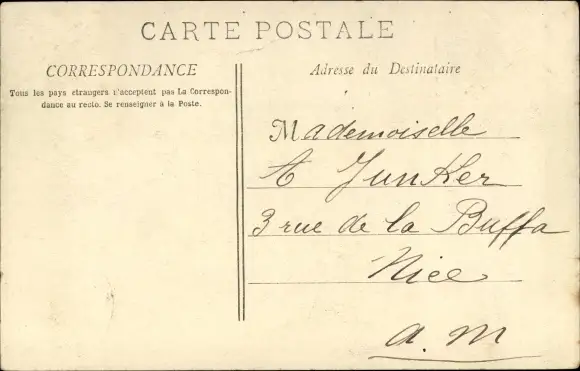 CARTE POSTALE
CORRESPONDANCE
Tous les pays étrangers n'acceptent pas La Correspon-
dance au recto. Se renseigner à la Poste.
Adresse du Destinataire
Mademoiselle
A Junker
3 rue de la Buffa
Nice
a.M